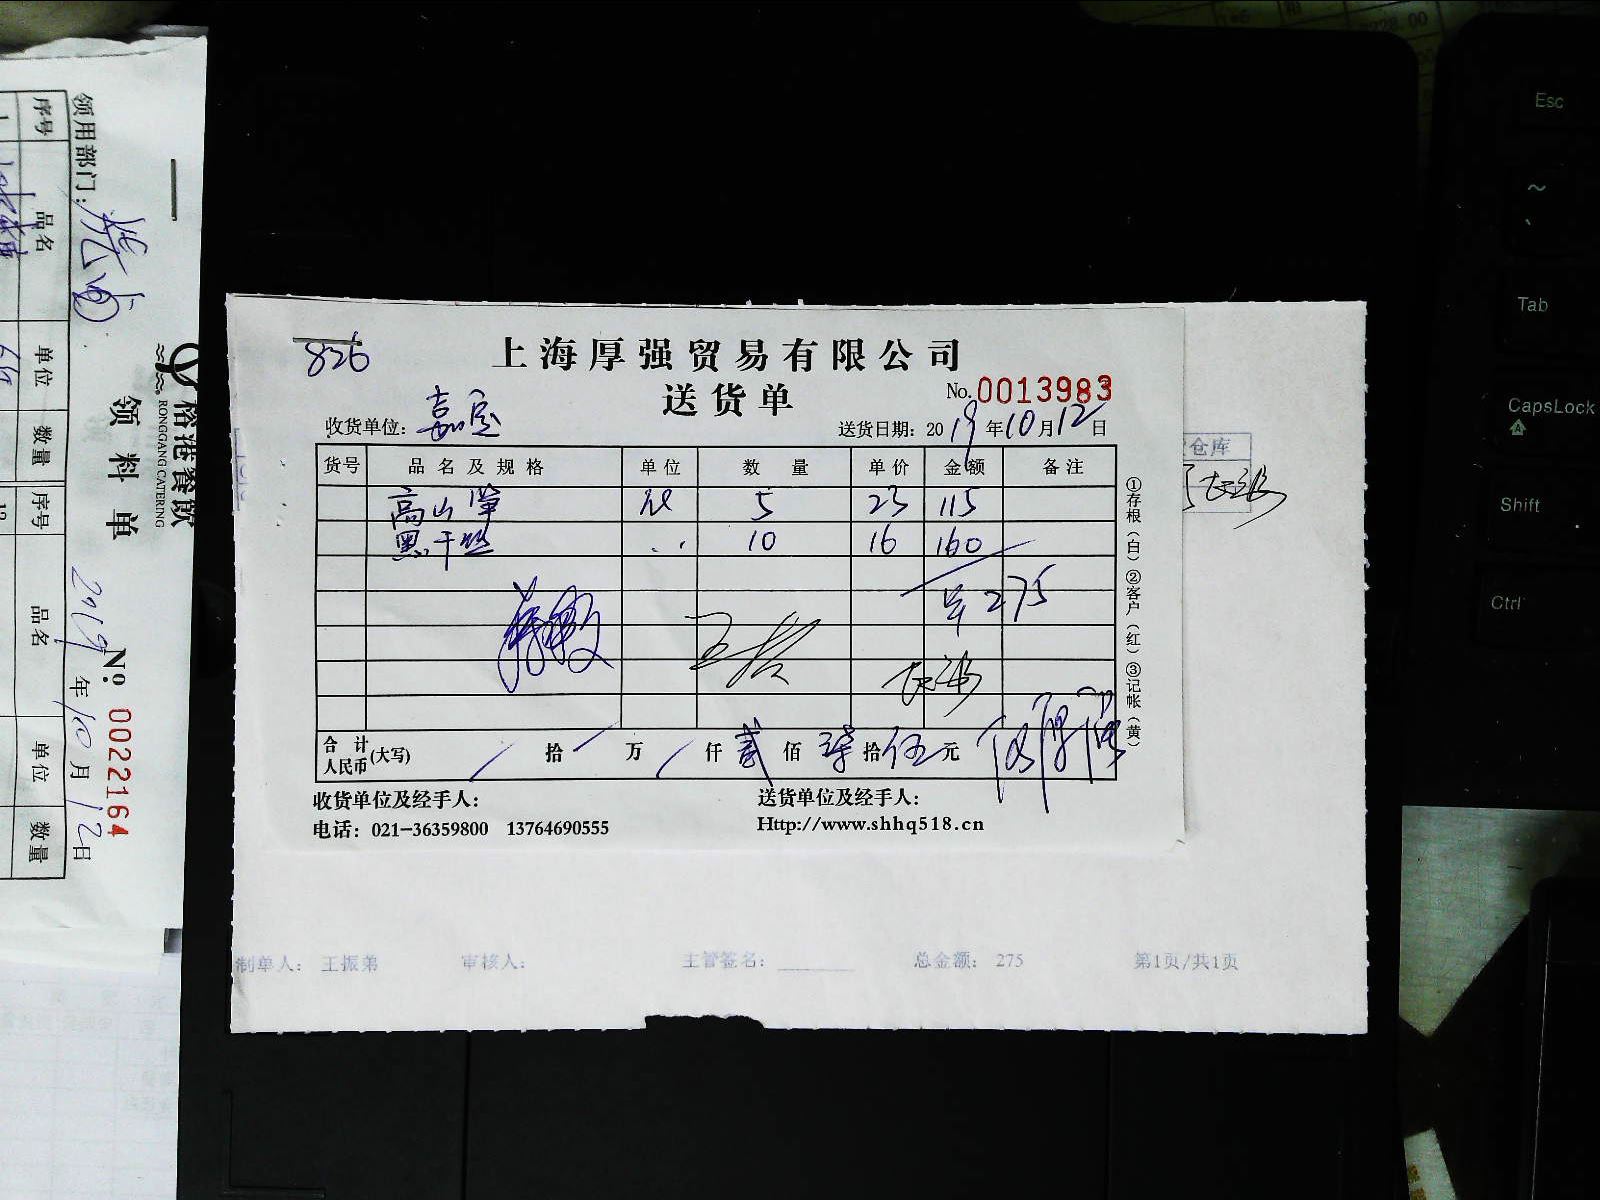 826
上海厚强贸易有限公司
送货单
No. 0013983
收货单位: 嘉定
送货日期: 2019年10月12日
货号 品名及规格 单位 数量 单价 金额 备注
高山笋 5 23 115
黑干丝 10 16 160
275
合计人民币(大写) 拾 万 仟 贰 佰 柒 拾 伍 元
收货单位及经手人:
送货单位及经手人:
电话: 021-36359800 13764690555
Http://www.shhq518.cn
①存根(白) ②客户(红) ③记帐(黄)
仓库
制单人: 王振弟 审核人: 主管签名: 总金额: 275 第1页/共1页
榕港餐饮
RONGGANG CATERING
领料单
No: 0022164
领用部门:
2019年10月12日
序号 品名 单位 数量 序号 品名 单位 数量
Esc
~
Tab
CapsLock
A
Shift
Ctrl